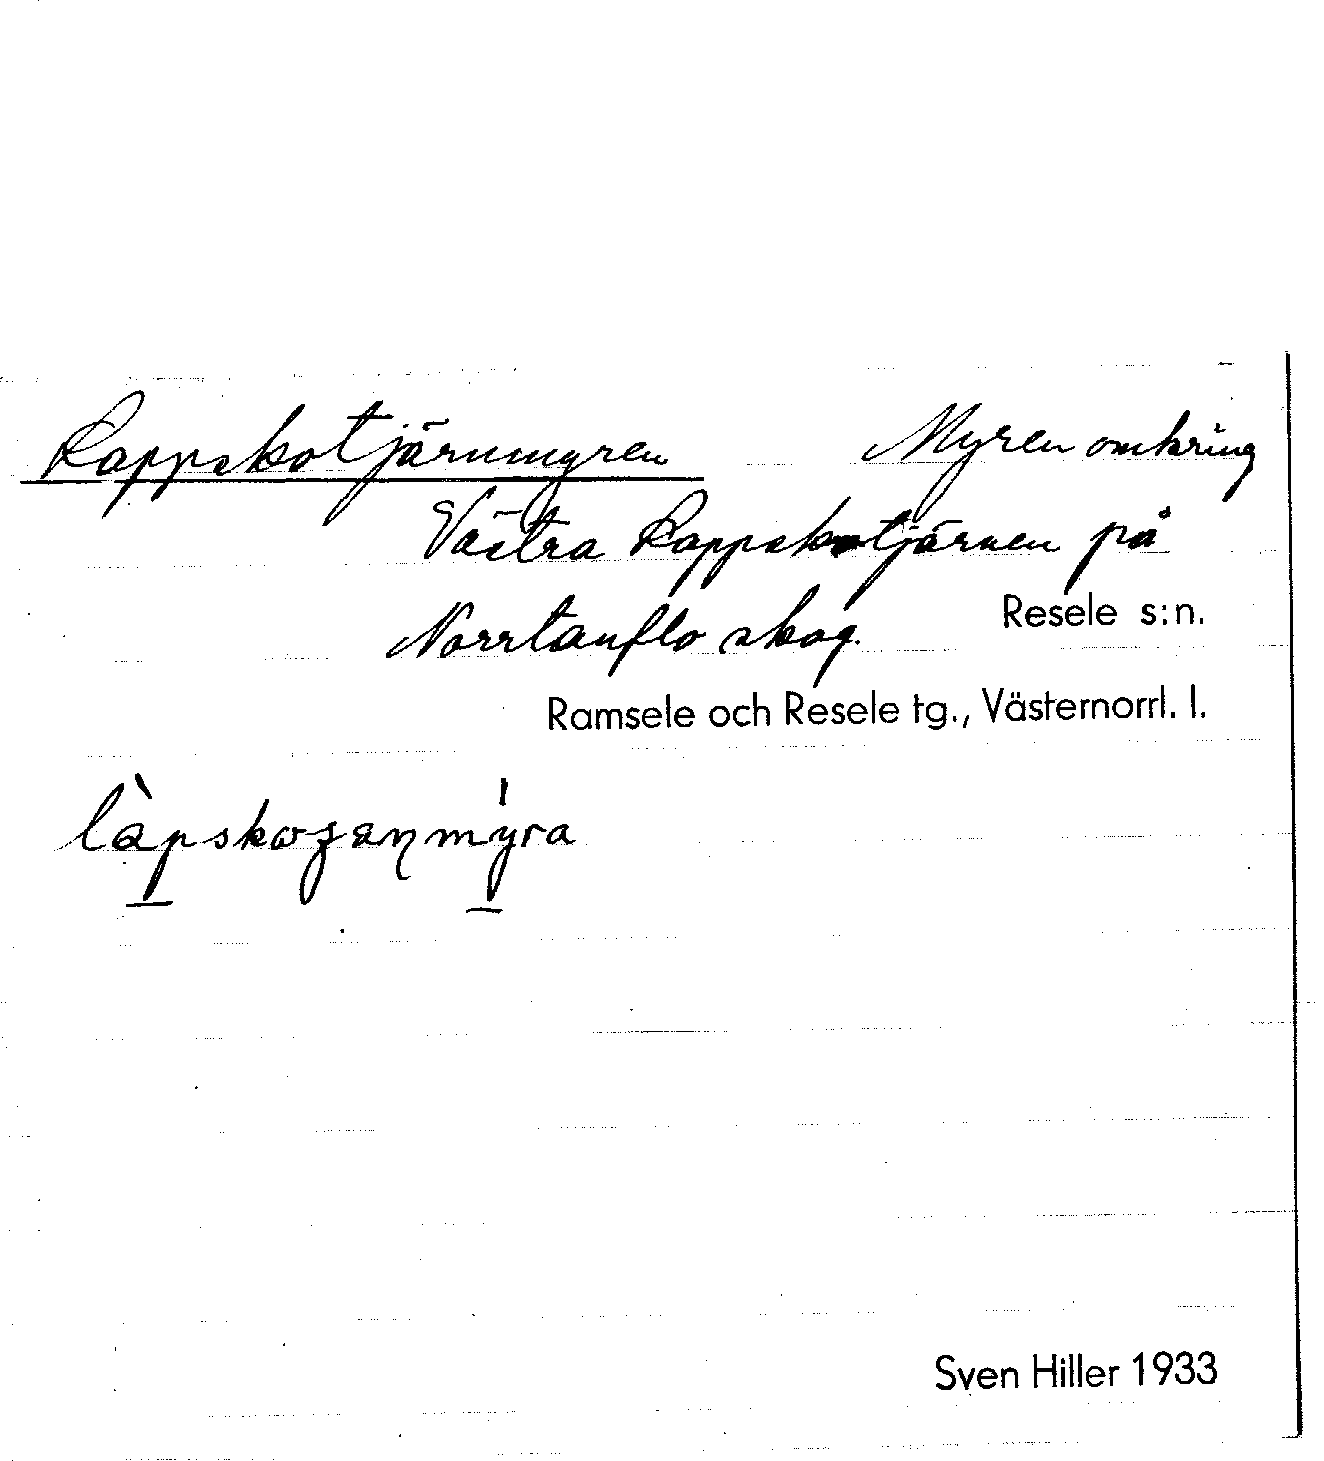 Lappskotjärnmyren Myren omkring
Västra Lappskotjärnen på
Norrtanflo skog.
Resele s:n.
Ramsele och Resele tg., Västernorrl. l.
Sven Hiller 1933